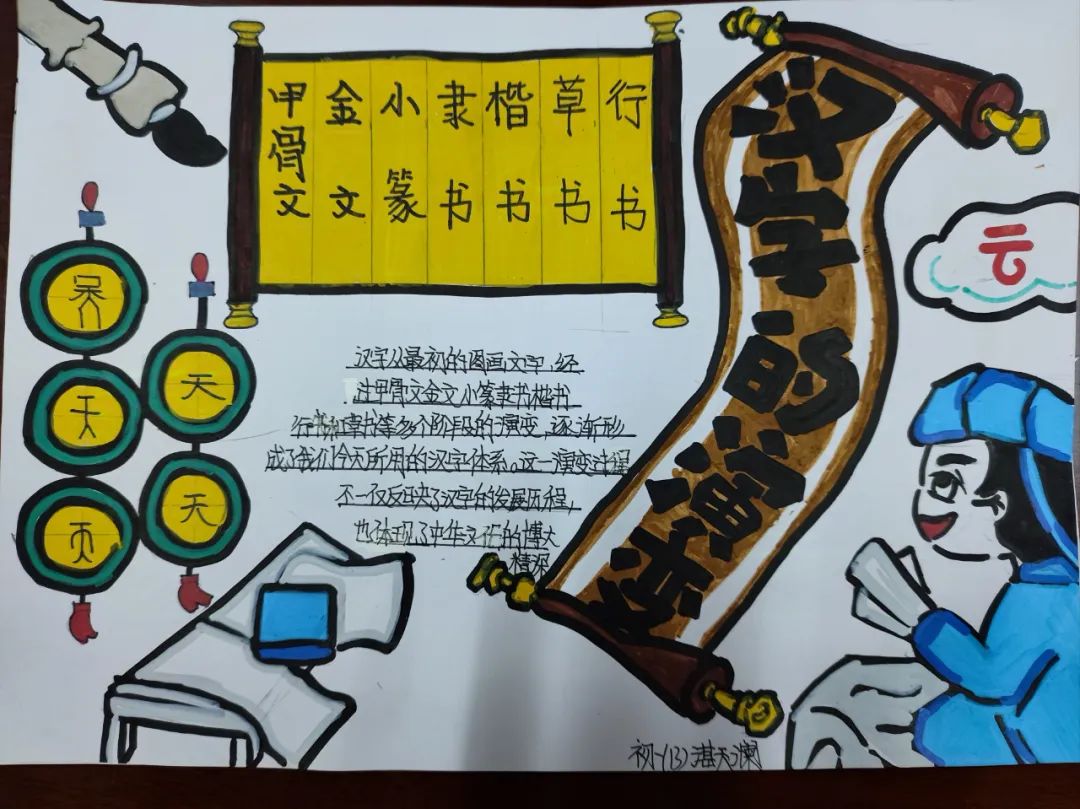 甲骨文
金文
小篆
隶书
楷书
草书
行书
汉字的演变
云
天
天
天
汉字从最初的图画文字,经
过甲骨文金文小篆隶书楷书
行书和草书等多个阶段的演变,逐渐形
成了我们今天所用的汉字体系。这一演变过程
不一仅反映了汉字的发展历程,
也体现了中华文化的博大
精深
初一(13)湛天澜